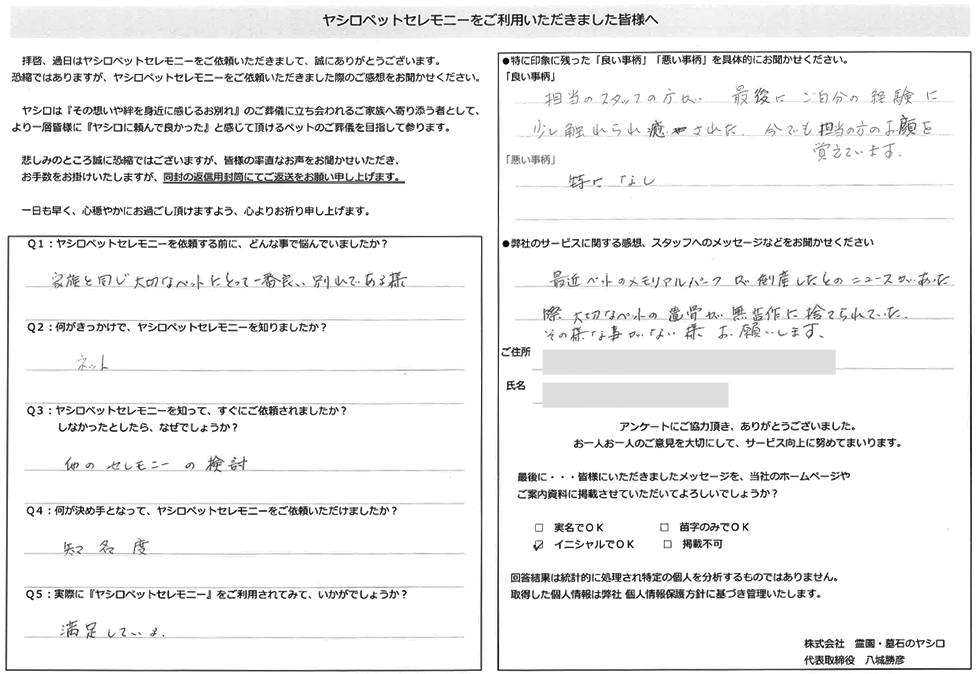 ヤシロペットセレモニーをご利用いただきました皆様へ
拝啓、過日はヤシロペットセレモニーをご依頼いただきまして、誠にありがとうございます。
恐縮ではありますが、ヤシロペットセレモニーをご依頼いただきました際のご感想をお聞かせください。
ヤシロは『その想いや絆を身近に感じるお別れ』のご葬儀に立ち会われるご家族へ寄り添う者として、
より一層皆様に『ヤシロに頼んで良かった』と感じて頂けるペットのご葬儀を目指して参ります。
悲しみのところ誠に恐縮ではございますが、皆様の率直なお声をお聞かせいただき、
お手数をお掛けいたしますが、同封の返信用封筒にてご返送をお願い申し上げます。
一日も早く、心穏やかにお過ごし頂けますよう、心よりお祈り申し上げます。
Q1：ヤシロペットセレモニーを依頼する前に、どんな事で悩んでいましたか？
家族と同じ大切なペットにとって一番良い別れである様
Q2：何がきっかけで、ヤシロペットセレモニーを知りましたか？
ネット
Q3：ヤシロペットセレモニーを知って、すぐにご依頼されましたか？
しなかったとしたら、なぜでしょうか？
他のセレモニーの検討
Q4：何が決め手となって、ヤシロペットセレモニーをご依頼いただけましたか？
知名度
Q5：実際に『ヤシロペットセレモニー』をご利用されてみて、いかがでしょうか？
満足している.
●特に印象に残った「良い事柄」「悪い事柄」を具体的にお聞かせください。
「良い事柄」
担当のスタッフの方が 最後にご自分の経験に
少し触れられ癒やされた. 今でも担当の方のお顔を
覚えています.
「悪い事柄」
特になし
●弊社のサービスに関する感想、スタッフへのメッセージなどをお聞かせください
最近ペットのメモリアルパークが倒産したとのニュースがあった
際 大切なペットの遺骨が無造作に捨てられていた.
その様な事がない様お願いします.
ご住所
氏名
アンケートにご協力頂き、ありがとうございました。
お一人お一人のご意見を大切にして、サービス向上に努めてまいります。
最後に・・・皆様にいただきましたメッセージを、当社のホームページや
ご案内資料に掲載させていただいてよろしいでしょうか？
□ 実名でOK □ 苗字のみでOK
☑ イニシャルでOK □ 掲載不可
回答結果は統計的に処理され特定の個人を分析するものではありません。
取得した個人情報は弊社 個人情報保護方針に基づき管理いたします。
株式会社 霊園・墓石のヤシロ
代表取締役 八城勝彦